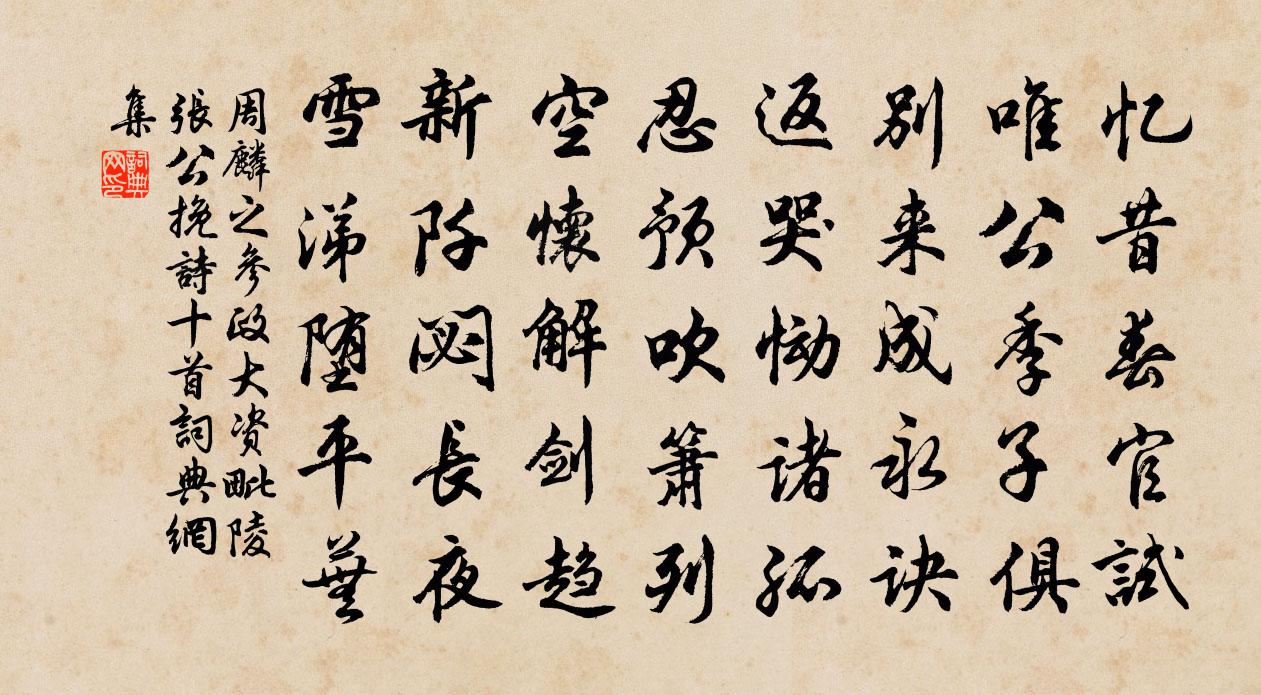 忆昔春官試
唯公季子俱
别来成永诀
返哭恸诸孤
忍预吹箫列
空懷解剑趋
新阡閟長夜
雪涕堕平蕪
周麟之參政大资毗陵
張公挽詩十首詞典網
集
詞典网印